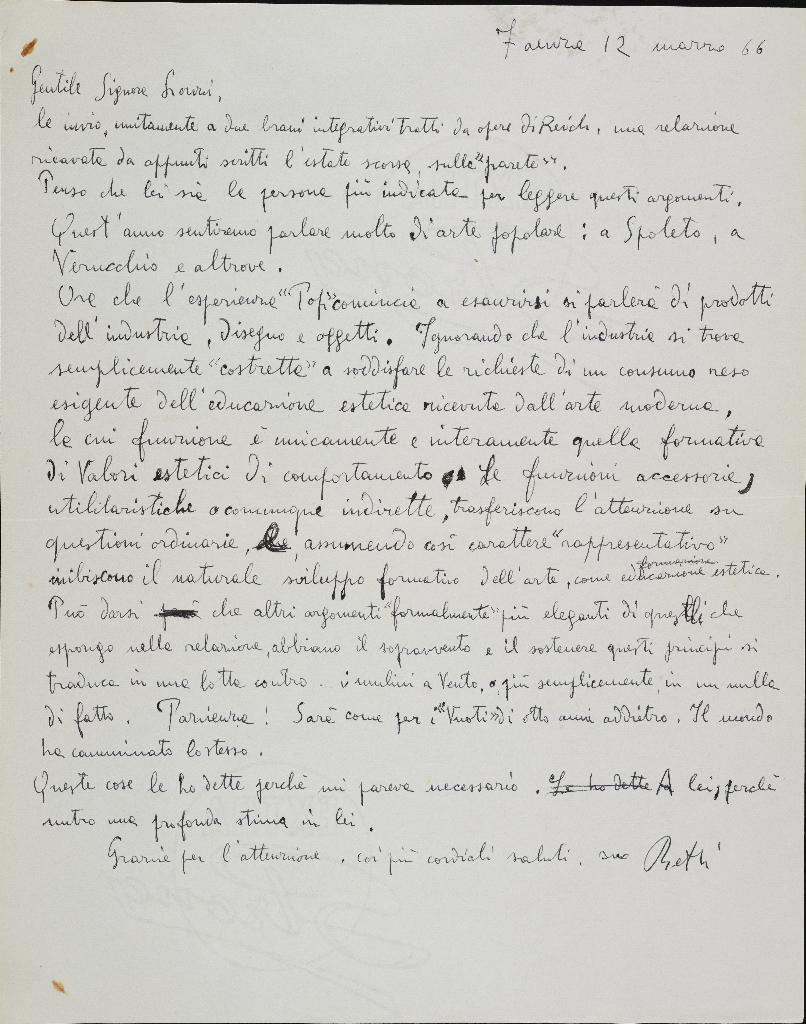 Faenza 12 marzo 66
Gentile Signora
le invio, unitamente a due brani integrativi tratti da opere di Reich, una relazione
ricavata da appunti scritti l'estate scorsa, sulla "parete".
Penso che lei sia la persona più indicata per leggere questi argomenti.
Quest'anno sentiremo parlare molto di arte popolare: a Spoleto, a
Verucchio e altrove.
Ora che l'esperienza "Pop" comincia a esaurirsi si parlerà di prodotti
dell'industria, disegno e oggetti. Ignorando che l'industria si trova
semplicemente "costretta" a soddisfare le richieste di un consumo reso
esigente dell'educazione estetica ricevuta dall'arte moderna,
la cui funzione è unicamente e interamente quella formativa
di Valori estetici di comportamento. Le funzioni accessorie,
utilitaristiche o comunque indirette, trasferiscono l'attenzione su
questioni ordinarie, assumendo così carattere "rappresentativo"
inibiscono il naturale sviluppo formativo dell'arte, come educazione formazione estetica.
Può darsi che altri argomenti "formalmente" più eleganti di questi che
espongo nella relazione, abbiano il sopravvento e il sostenere questi principi si
traduca in una lotta contro. i mulini a Vento, o, più semplicemente, in un nulla
di fatto. Pazienza! Sarà come per i "Vuoti" di otto anni addietro. Il mondo
ha camminato lo stesso.
Queste cose le ho dette perchè mi pareva necessario. Le ho dette A lei, perchè
nutro una profonda stima in lei.
Grazie per l'attenzione. coi più cordiali saluti. suo